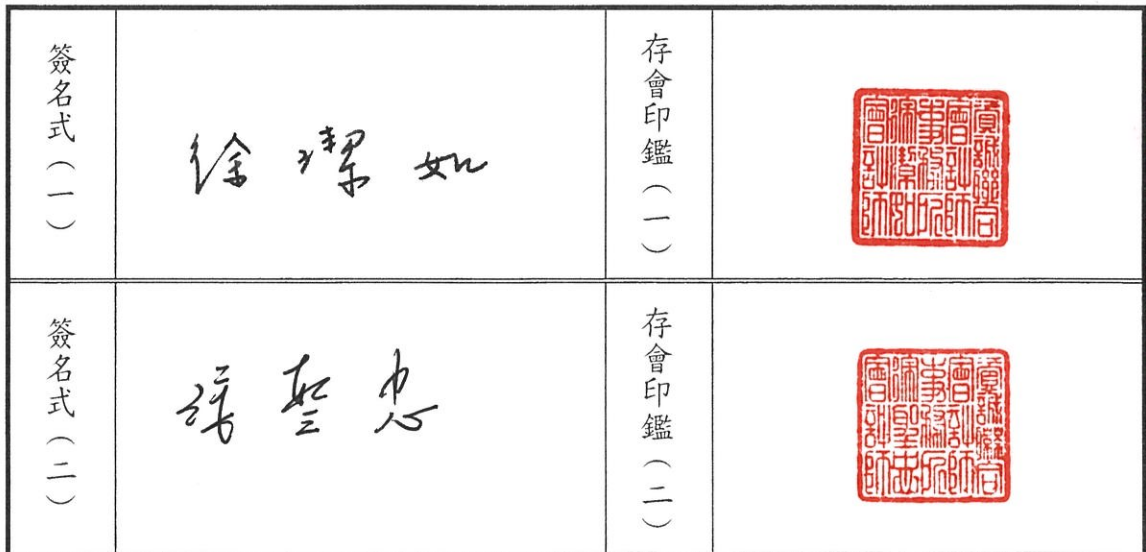 簽名式(一)
徐潔如
存會印鑑(一)
資誠聯合
會計師
事務所
徐潔如
會計師
簽名式(二)
徐聖忠
存會印鑑(二)
資誠聯合
會計師
事務所
徐聖忠
會計師